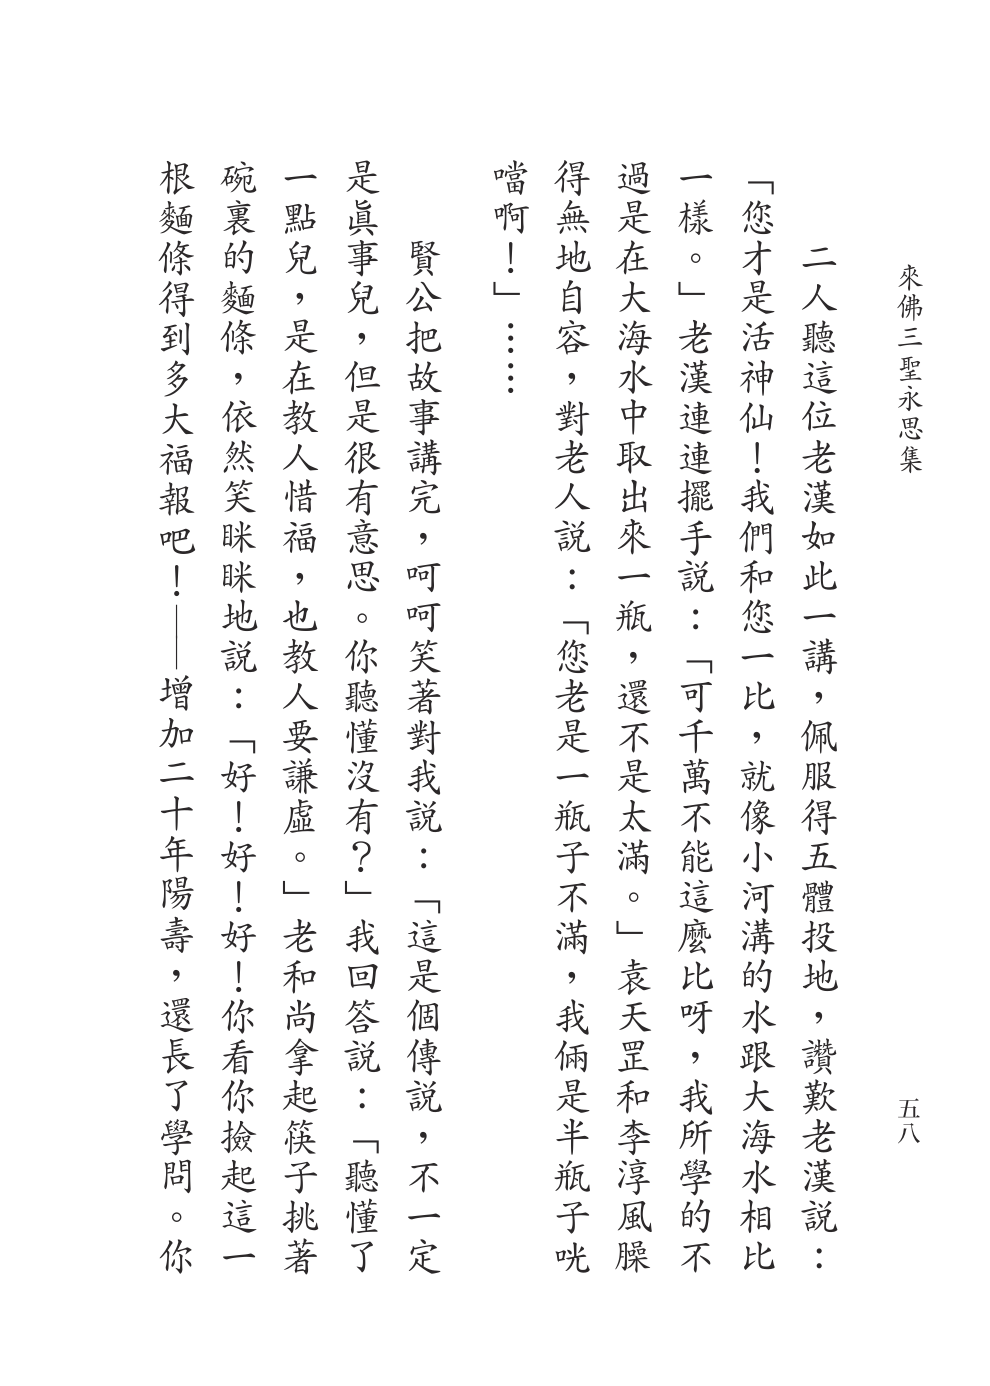 來佛三聖永思集
五八
二人聽這位老漢如此一講，佩服得五體投地，讚歎老漢説：
「您才是活神仙！我們和您一比，就像小河溝的水跟大海水相比
一樣。」老漢連連擺手説：「可千萬不能這麼比呀，我所學的不
過是在大海水中取出來一瓶，還不是太滿。」袁天罡和李淳風臊
得無地自容，對老人説：「您老是一瓶子不滿，我倆是半瓶子咣
噹啊！」……
賢公把故事講完，呵呵笑著對我説：「這是個傳説，不一定
是眞事兒，但是很有意思。你聽懂沒有？」我回答説：「聽懂了
一點兒，是在教人惜福，也教人要謙虛。」老和尚拿起筷子挑著
碗裏的麵條，依然笑眯眯地説：「好！好！好！你看你撿起這一
根麵條得到多大福報吧！——增加二十年陽壽，還長了學問。你